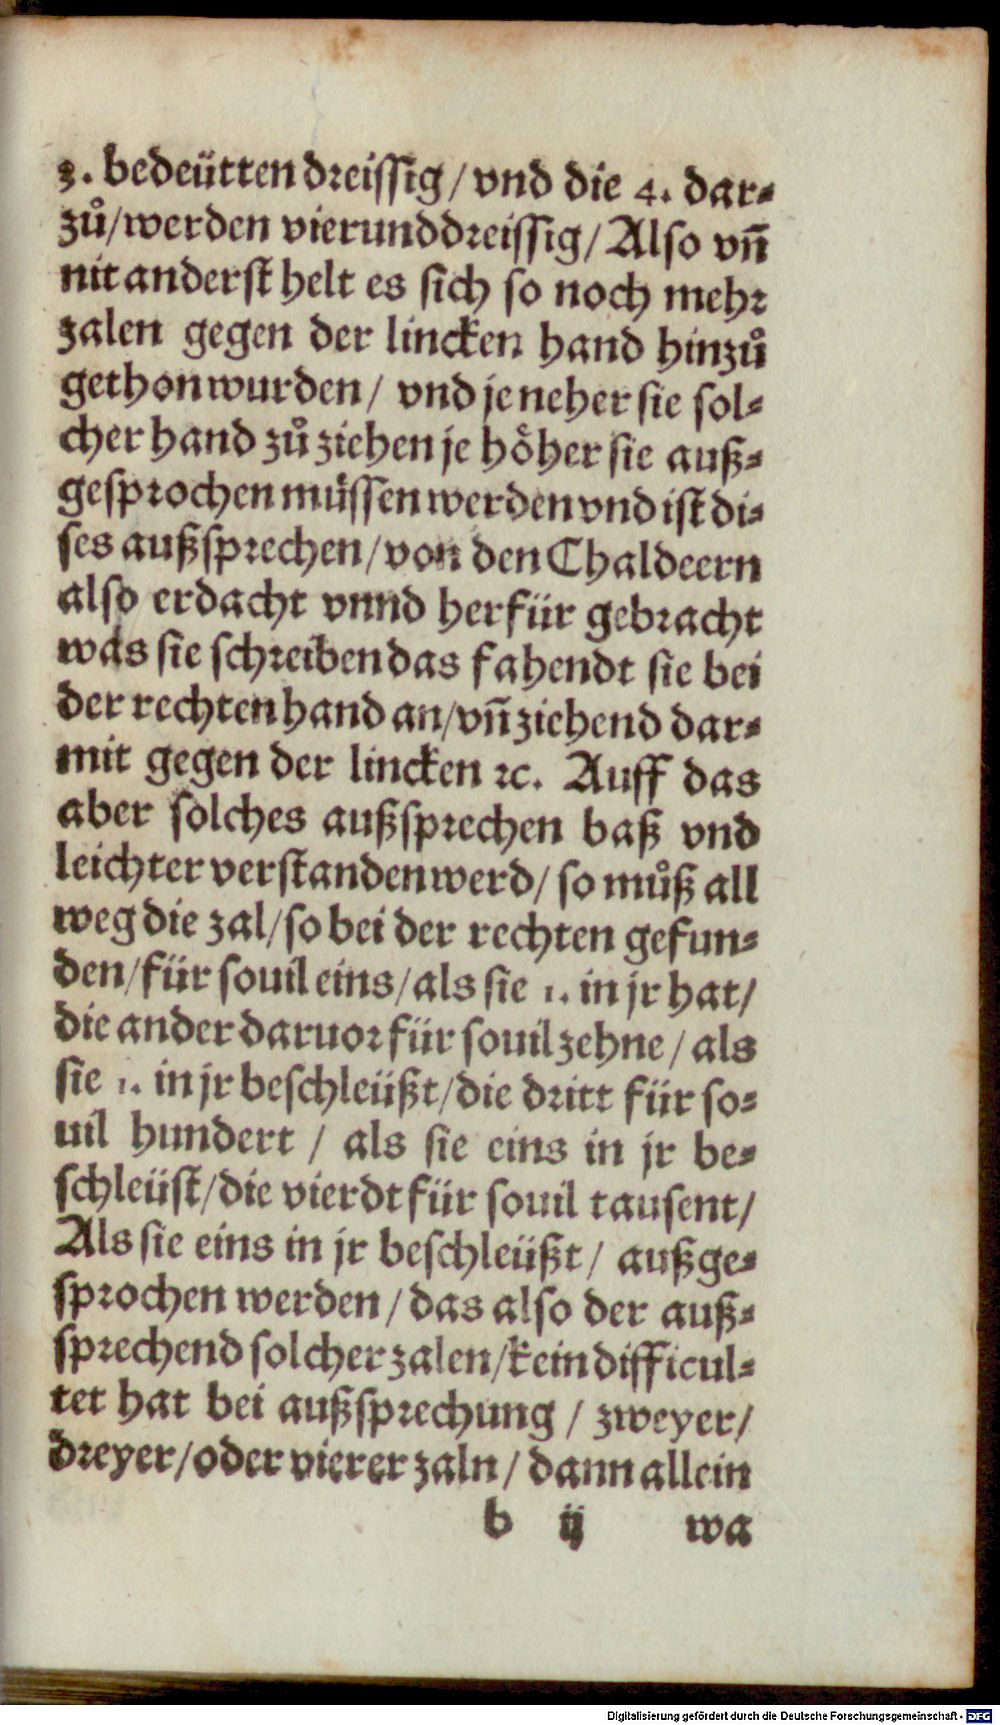 3. bedeütten dreissig / vnd die 4. dar⸗
zů/werden vierunddreissig/ Also vn̄
nit anderst helt es sich so noch mehr
zalen gegen der lincken hand hinzů
gethon wurden / vnd je neher sie sol⸗
cher hand zů ziehen je hoͤher sie auß⸗
gesprochen muͤssen werden vnd ist di⸗
ses außsprechen/von den Chaldeern
also erdacht vnnd herfür gebracht
was sie schreiben das fahendt sie bei
der rechten hand an/vn̄ ziehend dar⸗
mit gegen der lincken ꝛc. Auff das
aber solches außsprechen baß vnd
leichter verstanden werd/ so můß all
weg die zal/so bei der rechten gefun⸗
den/für souil eins/als sie 1. in jr hat/
die ander daruor für souil zehne / als
sie 1. in jr beschleüßt/die dritt für so⸗
uil hundert / als sie eins in jr be⸗
schleüst/die vierdt für souil tausent/
Als sie eins in jr beschleüßt / außge⸗
sprochen werden / das also der auß⸗
sprechend solcher zalen/kein difficul⸗
tet hat bei außsprechung / zweyer/
dreyer/oder vierer zaln / dann allein
b ij wa
Digitalisierung gefördert durch die Deutsche Forschungsgemeinschaft - DFG